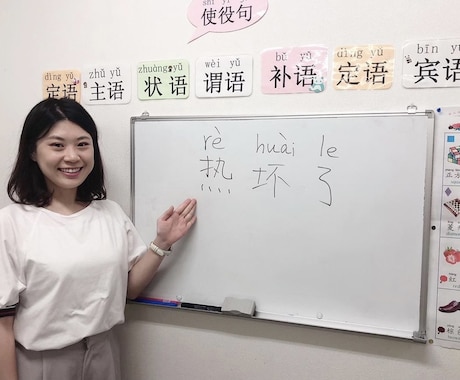 shǐ yì jù
使役句
dìng yǔ zhǔ yǔ zhuàng yǔ wèi yǔ bǔ yǔ dìng yǔ bīn yǔ
定语 主语 状语 谓语 补语 定语 宾语
rè huài le
热 坏 了